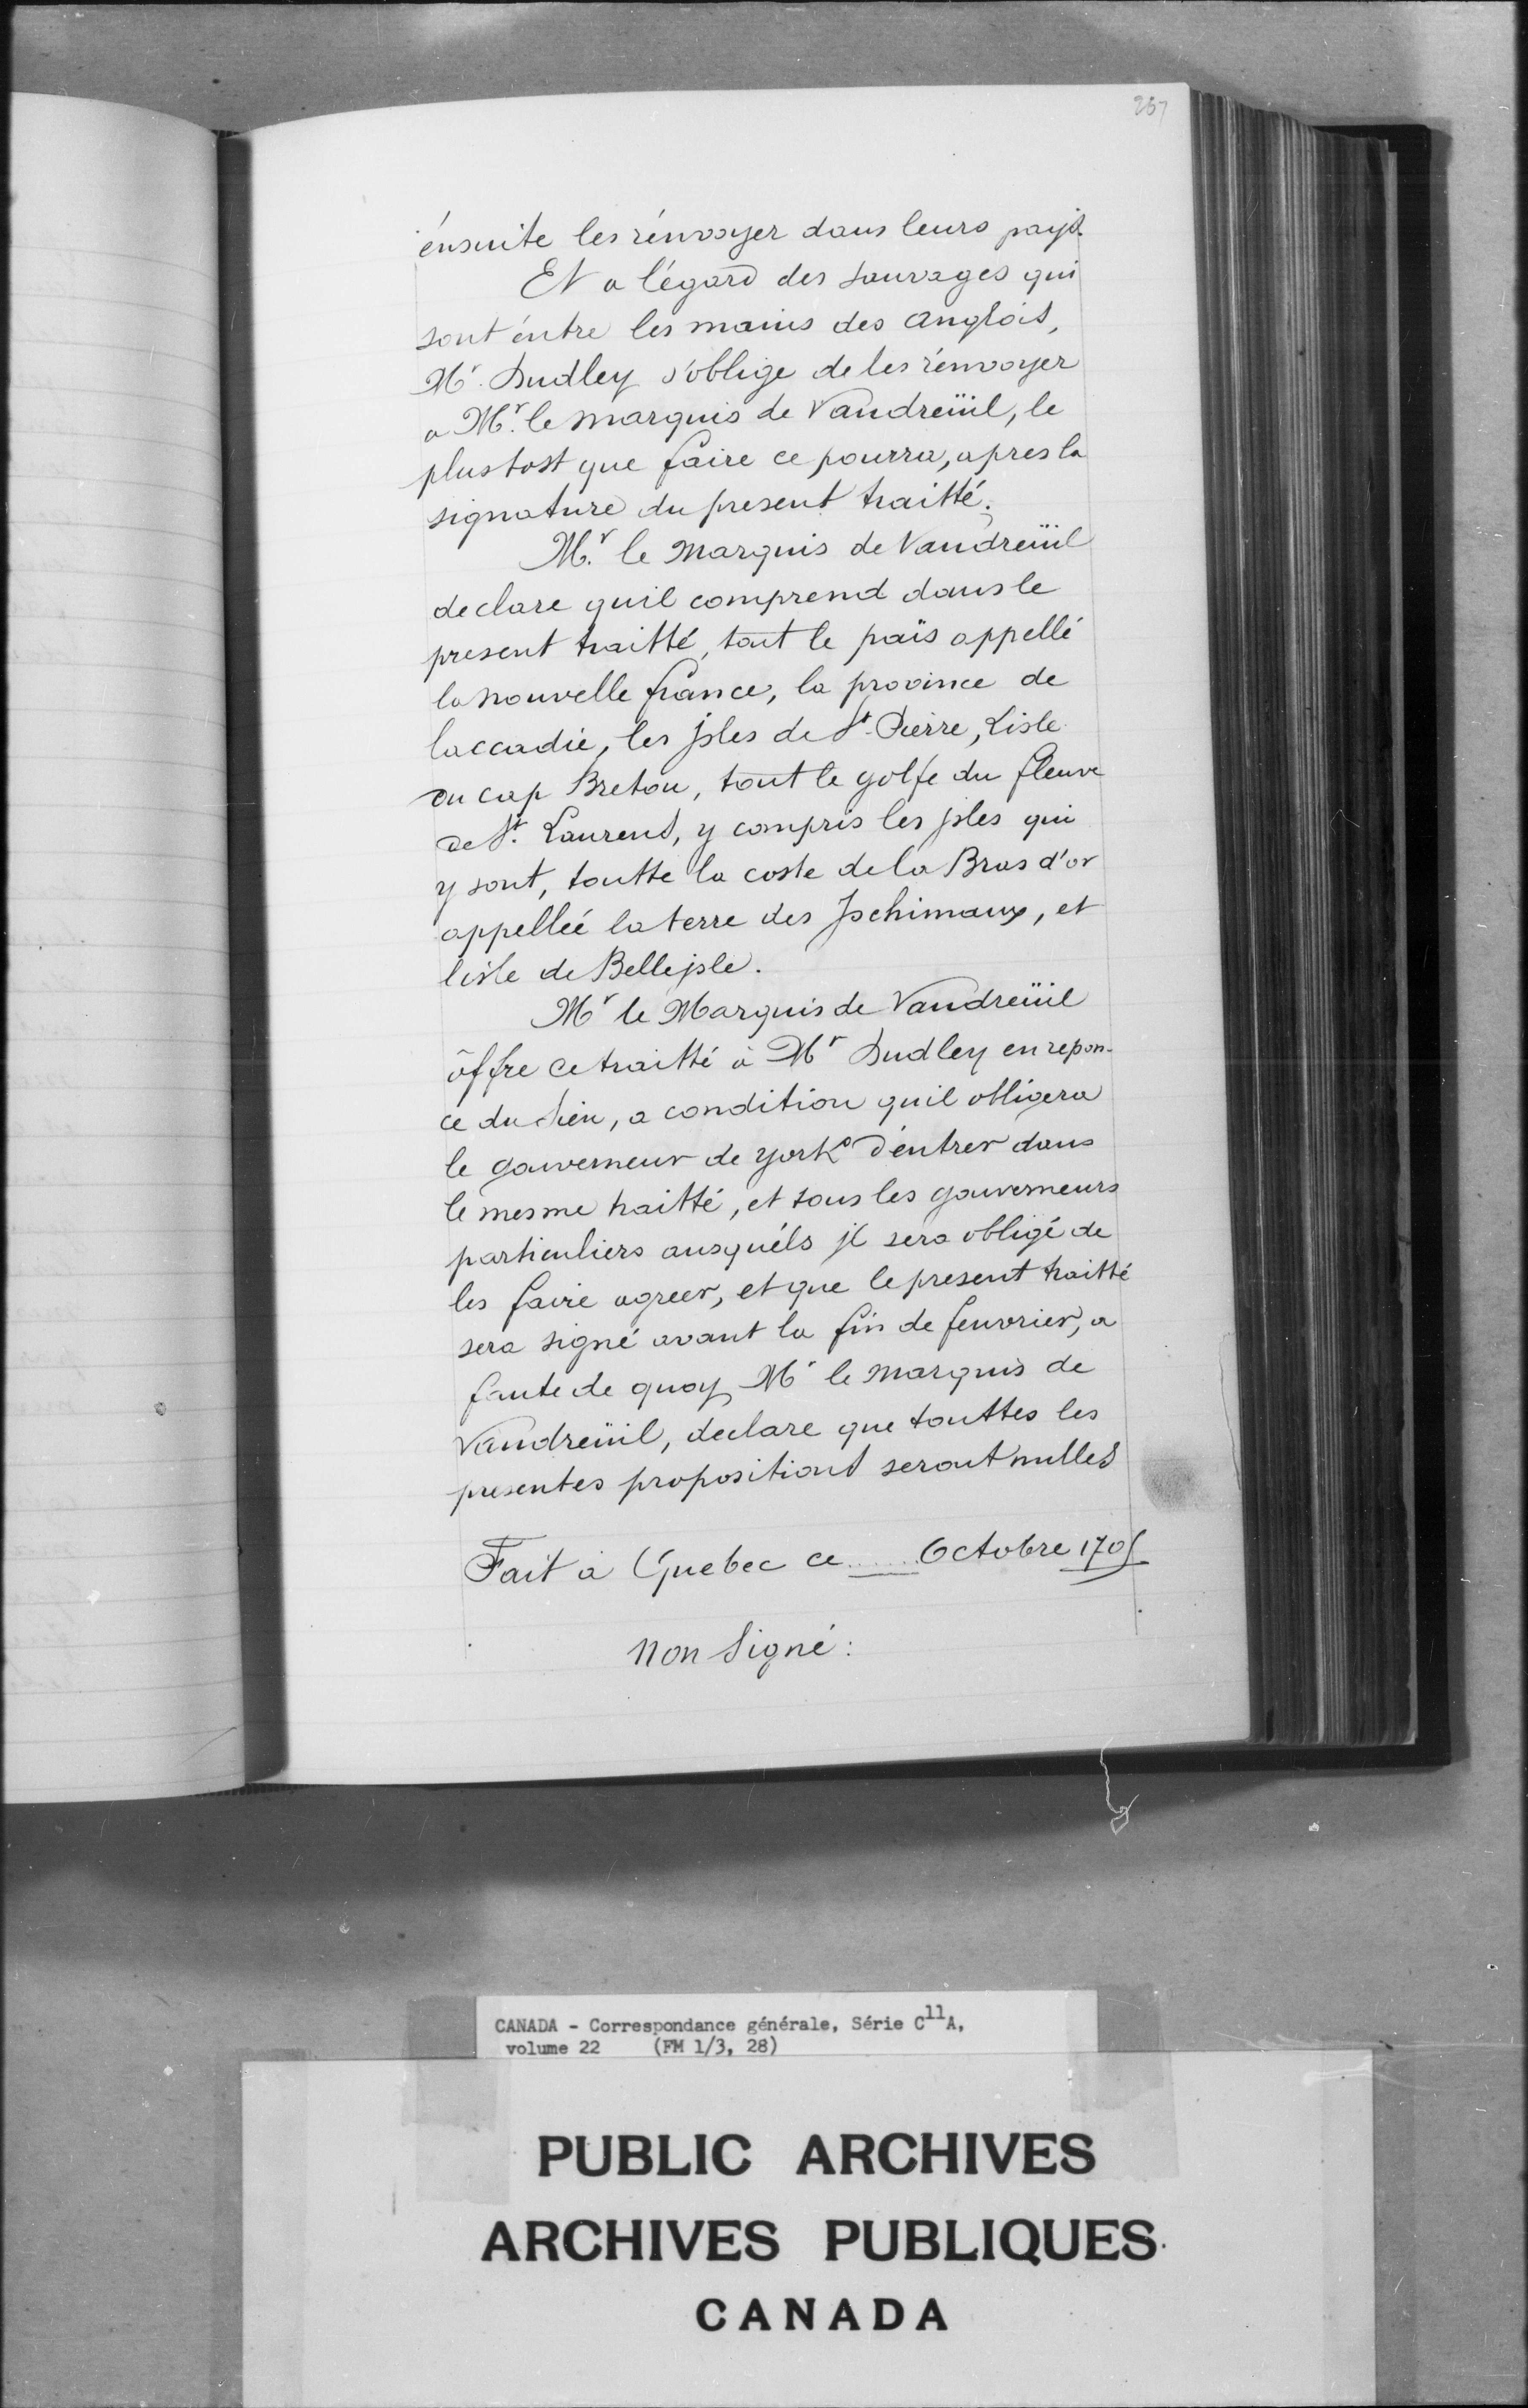 257
énsuite les rénvoyer dans leurs pays.
Et a l'égard des sauvages qui
sont éntre les mains des anglois,
Mr. Dudley s'oblige de les rénvoyer
a Mr. le marquis de Vaudreüil, le
plustost que faire ce pourra, apres la
signature du present traitté.
Mr. le marquis de Vaudreüil
declare quil comprend dans le
present traitté, tout le païs appellé
la nouvelle france, la province de
laccadie, les jsles de St. Pierre, Lisle
du cap Breton, tout le golfe du fleuve
de St. Laurens, y compris les jsles qui
y sont, toutte la coste de la Bras d'or
appelleé la terre des Jschimaux, et
lisle de Bellejsle.
Mr le Marquis de Vaudreüil
offre ce traitté à Mr Dudley en repon-
ce du sien, a condition quil obligera
le gouverneur de york d'éntrer dans
le mesme traitté, et tous les gouverneurs
particuliers ausquéls jl sera obligé de
les faire agreer, et que le present traitté
sera signé avant la fin de feuvrier, a
faute de quoy Mr le marquis de
Vaudreüil, declare que touttes les
presentes propositions seront nulles
Fait à Quebec ce ...... Octobre 1705
non signé:
CANADA - Correspondance générale, Série C11A,
volume 22 (FM 1/3, 28)
PUBLIC ARCHIVES
ARCHIVES PUBLIQUES
CANADA